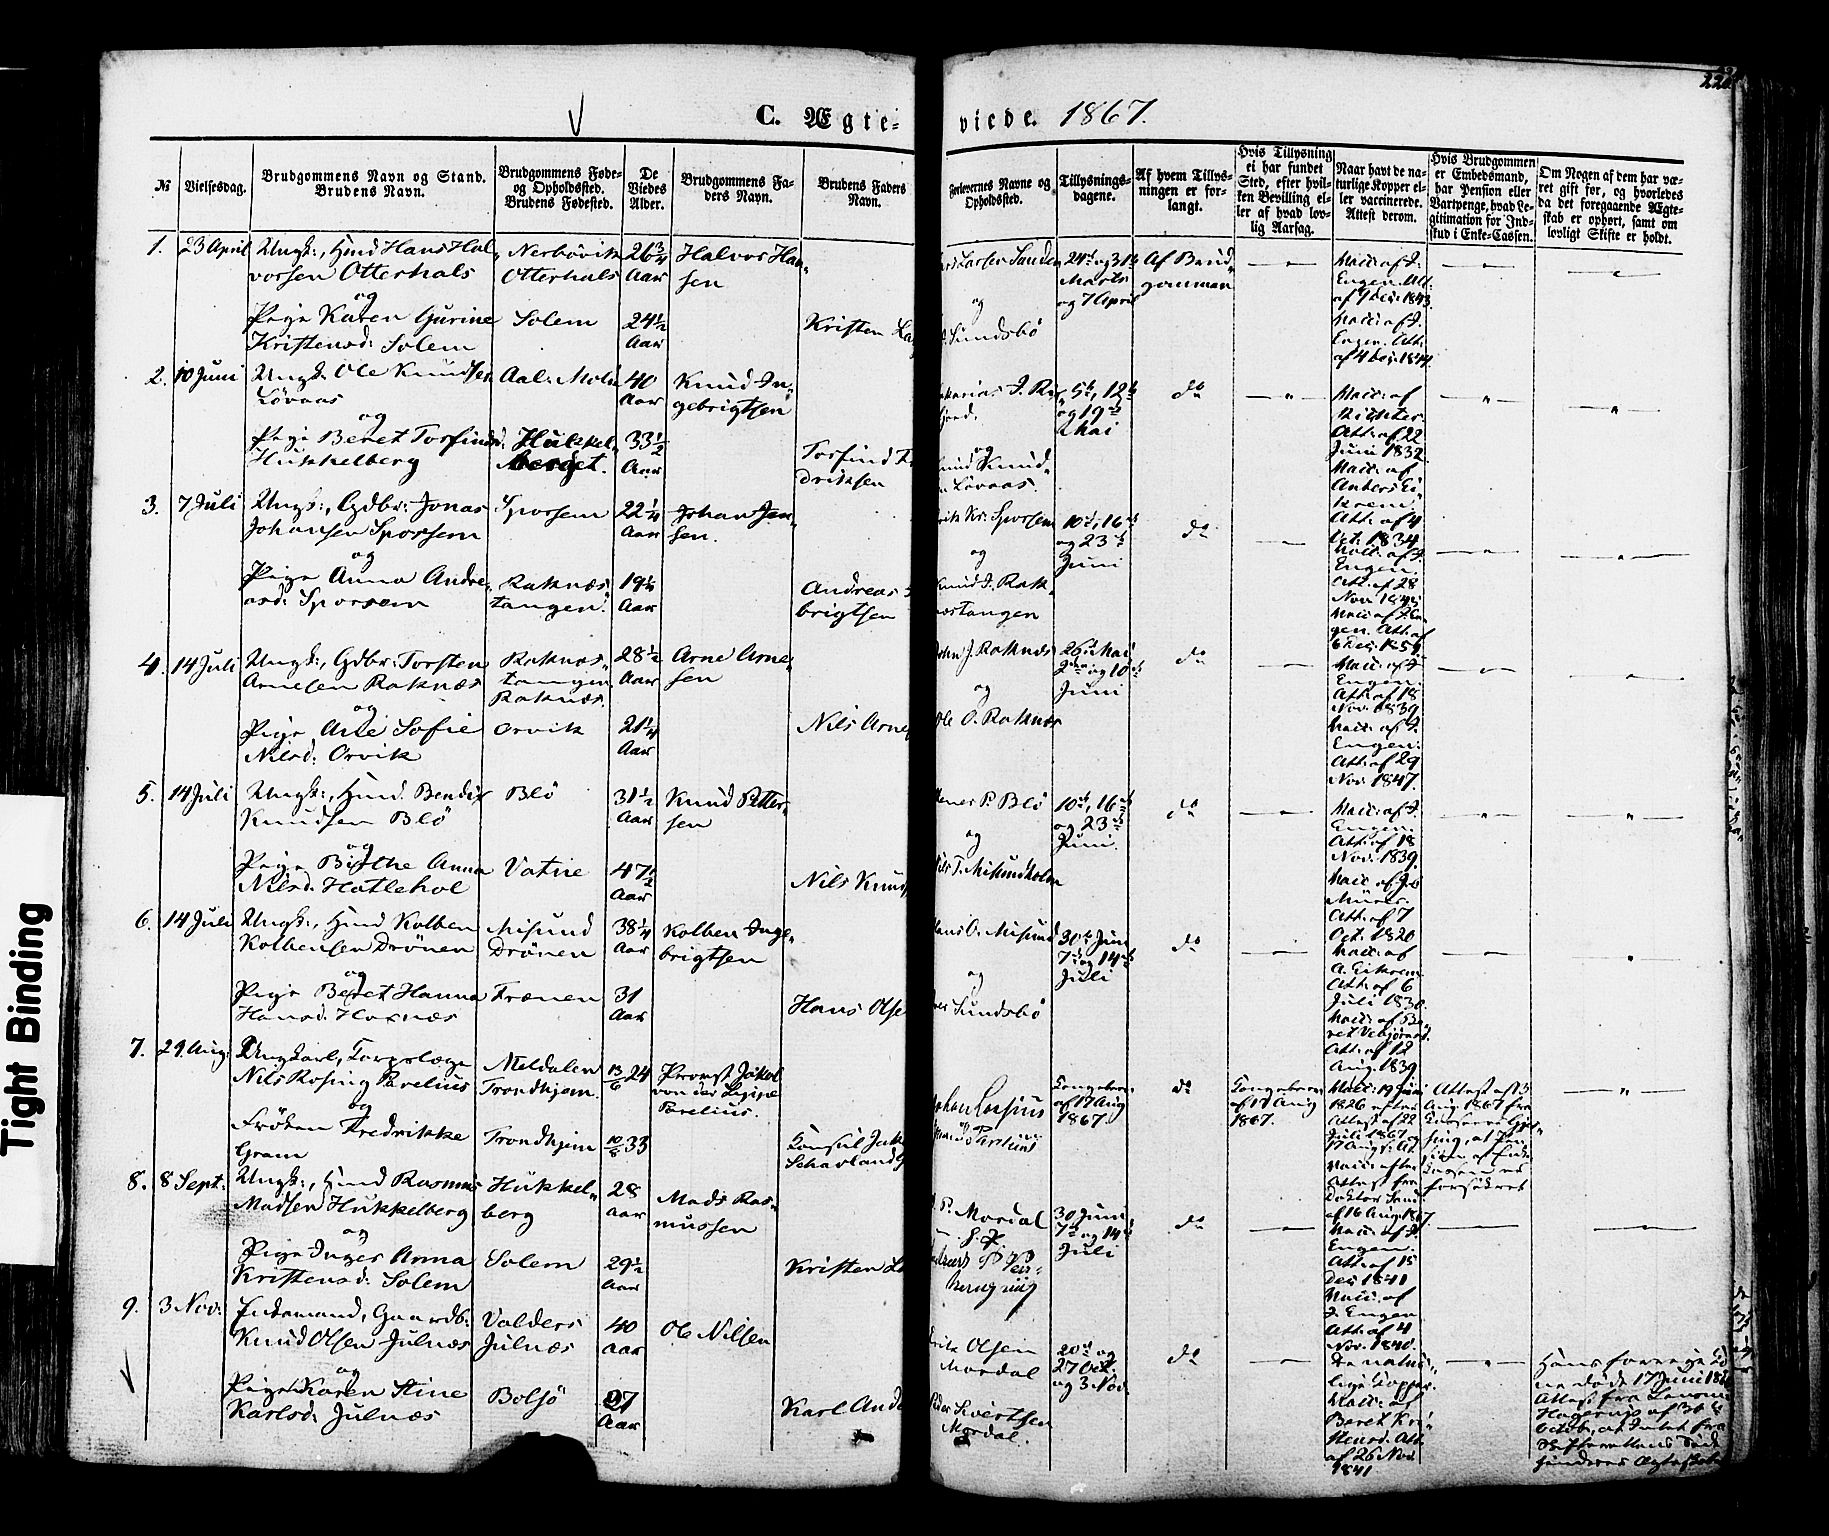 220
C. Ægte-
viede. 1867.
№
Vielsesdag.
Brudgommens Navn og Stand.
Brudens Navn.
Brudgommens Føde-
og Opholdssted.
Brudens Fødested.
De
Viedes
Alder.
Brudgommens Fa-
ders Navn.
Brudens Faders
Navn.
Forlovernes Navne og
Opholdssted.
Tillysnings-
dagene.
Af hvem Tillys-
ningen er for-
langt.
Hvis Tillysning
ei har fundet
Sted, efter hvil-
ken Bevilling el-
ler af hvad lov-
lig Aarsag.
Naar havt de na-
turlige Kopper el-
ler vaccinerede.
Attest derom.
Hvis Brudgommen
er Embedsmand,
har Pension eller
Vartpenge, hvad Le-
gitimation for Ind-
skud i Enke-Cassen.
Om Nogen af dem har væ-
ret gift før, og hvorledes
da det foregaaende Ægte-
skab er ophørt, samt om
lovligt Skifte er holdt.
1. 23 April
Ungk:, Hmd Hans Hal-
vorsen Otterhals
og
Pige Karen Gurine
Kristensd: Solem
Nerbövik
Otterhals
Solem
26 3/4
Aar
24 1/2
Aar
Halvor Han-
sen
Kristen La
Larsen Sanden
og
Sundsbö
24d og 31d
Marts
og 7 April
Af Brud-
gommen
Vacc: af J.
Engen Att.
af 9 Dec: 1843
Vacc: af J.
Engen. Att.
af 4 Dec: 1844
2. 10 Juni
Ungk. Ole Knudsen
Lövaas
og
Pige Beret Torfinds:
Hukkelberg
Aal: Molde
Hukkel-
berget.
40
Aar
33 1/2
Aar
Knud In-
gebrigtsen
Torfind
driksen
og
Knud Knud-
Lövaas.
5t, 12t
og 19de
Mai
do
Vacc: af
Richter
Att: af 22
Juni 1832
Vacc: af
Anders Ei-
krem
Att: af 4
Oct: 1834
3. 7 Juli
Ungk:, Gdbr: Jonas
Johansen Sporsem
og
Pige Anna Andre-
asd: Sporsem
Sporsem
Raknæs-
tangen.
22 1/4
Aar
19 1/2
Aar
Johan Jen-
sen.
Andreas
brigtsen
Kr: Sporsem
og
Knud J. Rak-
næstangen
10d, 16de
og 23d
Juni
do
Vacc: af J.
Engen.
Att: af 28
Nov:
Vacc: af J. En-
gen. Att: af
6 Dec:
4. 14 Juli
Ungk:, Gdbr: Torsten
Arnesen Raknæs
og
Pige Ane Sofie
Nilsd: Orvik
Raknæs-
tangen
Raknæs.
Orvik
28 1/2
Aar
21 1/4
Aar
Arne Arne-
sen
Nils Arne
John J. Raknæs
og
Ole O. Raknæs
26d Mai
2den og 10de
Juni
do
Vacc: af J.
Engen.
Att: af 18
Nov: 1839
Vacc: af J.
Engen:
Att: af 29
Nov: 1847.
5. 14 Juli
Ungk:, Hmd. Bendix
Knudsen Blö
og
Pige Birthe Anna
Nilsd: Hatlehol
Blö
Vatne
31 1/2
Aar
47 1/2
Aar
Knud Petter-
sen
Nils Knud
P. Blö
og
Nils T. Misundholm
10de, 16de
og 23de
Juni.
do
Vacc: af J.
Engen:
Att: af 18
Nov: 1839
Vacc: af
Att: af 7
Oct: 1820
6. 14 Juli
Ungk:, Hmd Kolben
Kolbensen Drönen
og
Pige Beret Hanna
Hansd:
Misund
Drönen
Frænen
38 1/4
Aar
31
Aar
Kolben Inge-
brigtsen
Hans Olse
Hans O. Misund
og
Sundsbö
30de Juni
7de og 14de
Juli
do
Vacc: af
A. Eikrem
Att: af 6
Juli 1830.
Vacc: af Be-
ret
Att: af 12
Aug: 1839
7. 29 Aug:
Ungkarl, Korpslæge
Nils Rosing Parelius
og
Fröken Fredrikke
Gram
Meldalen
Trondhjem.
Trondhjem
13/6 24
10/8 33
Provst Jakob
von der Lippe
Parelius.
Konsul Jak
Johan Lossius
og
Parelius
Kongebrev
af 17 Aug
1867.
do
Kongebrev
af 17 Aug
1867.
Vacc: 19 Juni
1826 efter
Attest af 22
Juli 1867 og
17 Aug:
Vacc: efter
Attest fra
Doktor
af 16 Aug: 1867.
Attest af 3
Aug: 1867 fra
forsökret
8. 8 Sept:
Ungk:, Hmd Rasmus
Madsen Hukkelberg
og
Pige Inger Anna
Kristensd: Solem
Hukkel-
berg
Solem
28
Aar
29 1/2
Aar
Mads Ras-
mussen
Kristen La
P. Mordal
30 Juni,
7de og 14de
Juli
do
Vacc: af J.
Engen.
Att: af 15
Dec: 1841
Vacc: af
J. Engen
Att: af 4
Nov: 1840.
9. 3 Nov:
Enkemand, Gaardb:
Knud Olsen Julnæs
og
Pige Karen Stine
Karlsd: Julnæs
Valders
Julnæs
Bolsö
40
Aar
27
Aar
Ole Nilsen
Karl Ande
Erik Olsen
Mordal
Peder Sivertsen
Mordal.
20de og
27 Oct.
og 3 Nov.
do
De natur-
lige Kopper.
Vacc: af
Beret Kri-
stensd. Att.
af 26 Nov:
1841
Hans forrige Ko-
ne döde 17 Juni
Attest fra
Tight Binding